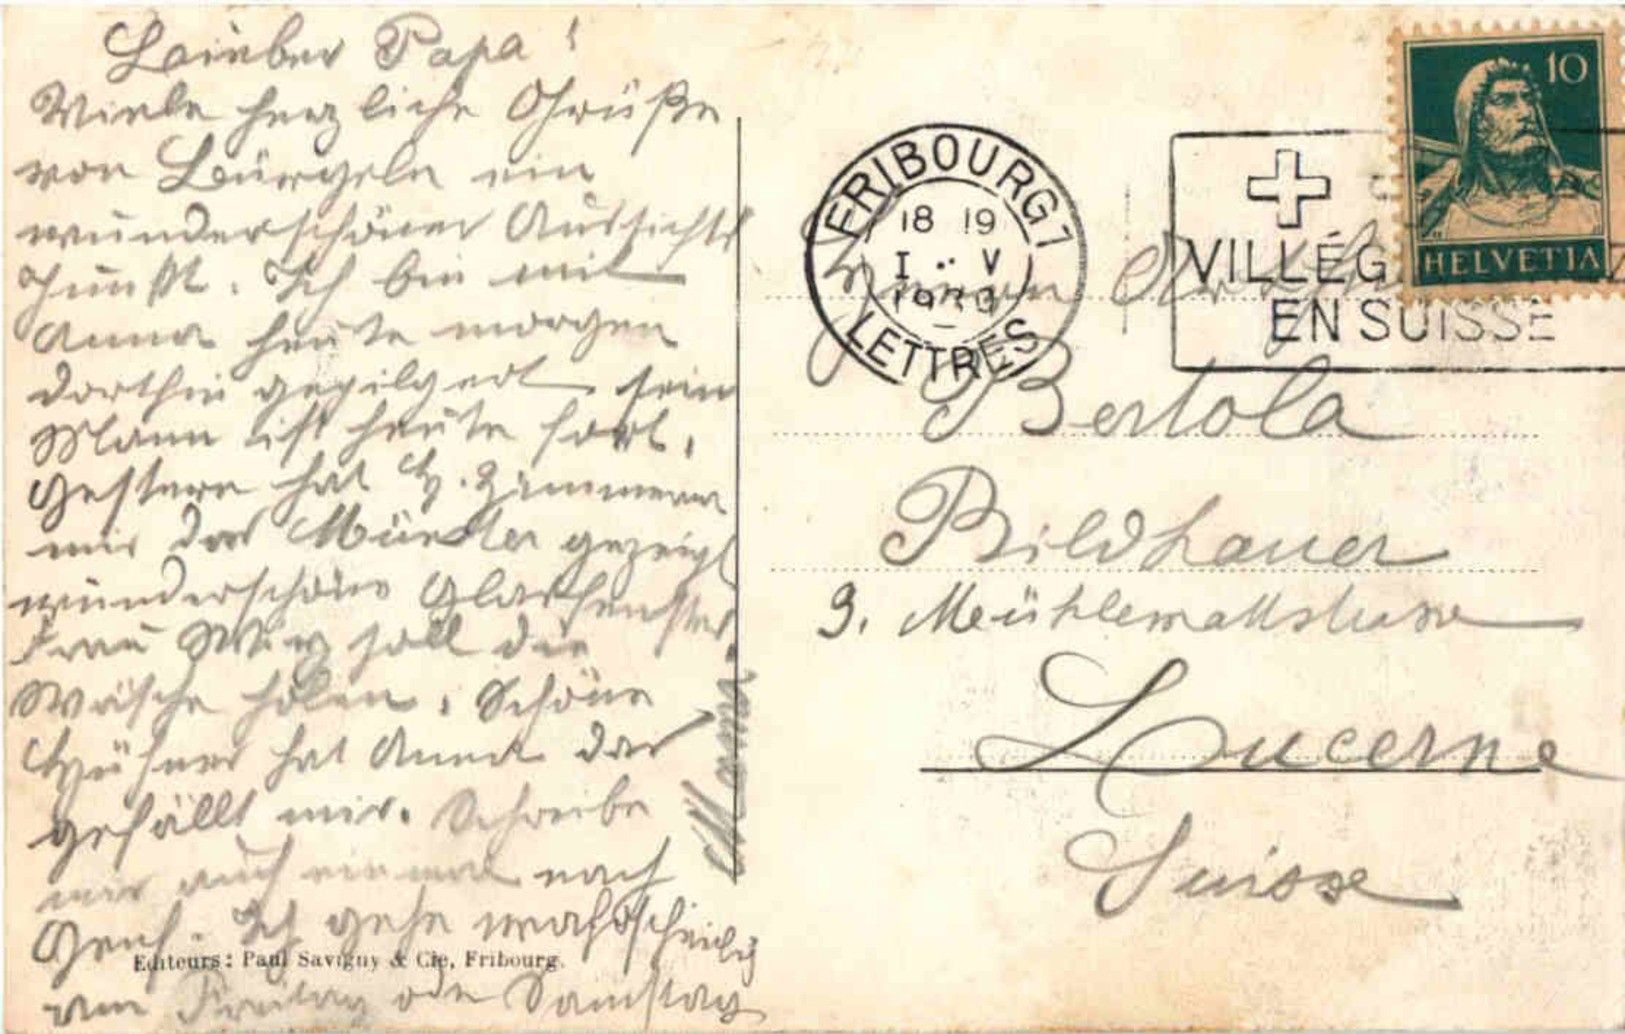 Lieber Papa!
Viele herzliche Grüße
von Bürgeln ein
wunderschöner Aussichts
punkt. Ich bin mit
Anna heute morgen
dorthin gepilgert. sein
Mann ist heute fort.
Gestern hat H. Zimmerman
mir das Münster gezeigt
wunderschöne Glasfenster.
Frau soll die
Wäsche holen. Schöne
Hühner hat Anna das
gefällt mir. Schreibe
mir auch einmal nach
Genf. Ich gehe wahrscheinlig
am Freitag oder Samstag
Mama.
Editeurs: Paul Savigny & Cie, Fribourg.
FRIBOURG 1
18 19
I V
LETTRES
VILLÉG
EN SUISSE
10
HELVETIA
Herrn
Bertola
Bildhauer
9. Mühlemattstrasse
Lucerne
Suisse